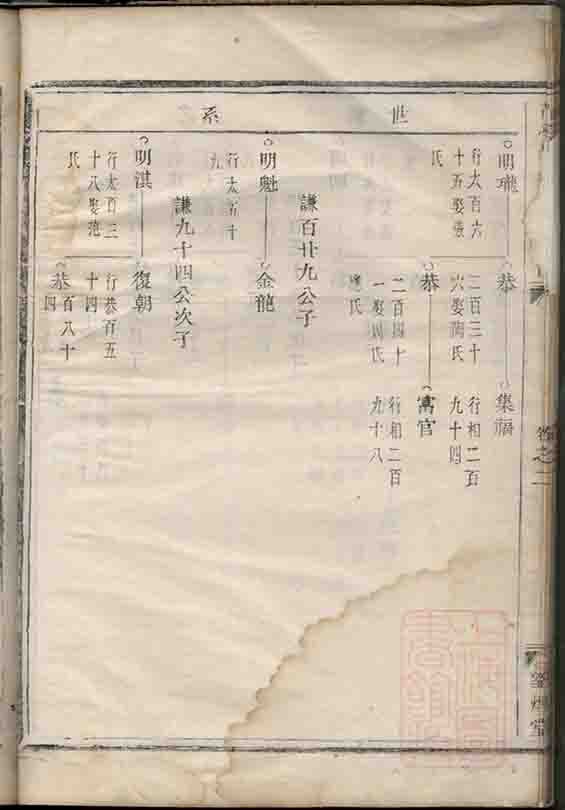 世系
明瓏
行太百六
十五娶張
氏
恭
二百三十
六娶陶氏
集福
行相二百
九十四
恭
二百四十
一娶周氏
氏
寓官
行相二百
九十八
謙百廿九公子
明魁
行太五十
九
金龍
謙九十四公次子
明淇
行太百三
十八娶范
氏
復朝
行恭百五
十四
恭
百八十
四
卷之二
堂
上海圖
書館藏